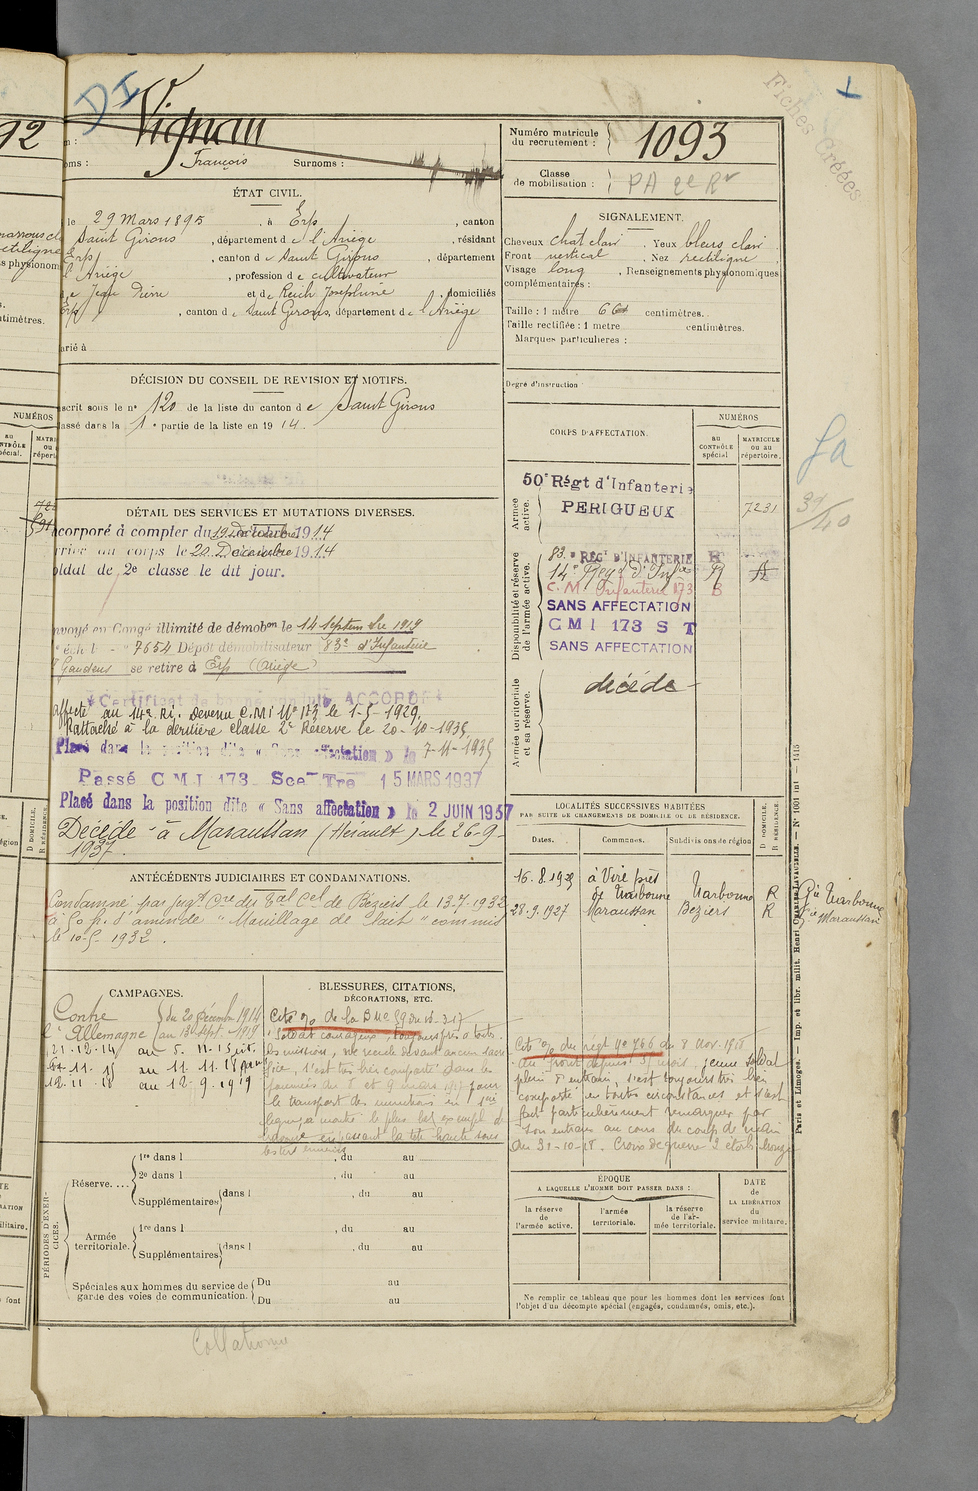 DI
Vignau
François Surnoms :
Numéro matricule du recrutement : 1093
Classe de mobilisation : PA 2e Rr
Fiches Créées
ÉTAT CIVIL.
le 29 Mars 1895, à Erp, canton
Saint Girons, département de l'Ariège, résidant
Erp, canton de Saint Girons, département
l'Ariège, profession de cultivateur
de Jean Pierre et de Reich Joséphine, domiciliés
Erp, canton de Saint Girons, département de l'Ariège
arié à
SIGNALEMENT.
Cheveux chat clair. Yeux bleus clair.
Front vertical. Nez rectiligne.
Visage long, Renseignements physionomiques
complémentaires :
Taille : 1 mètre 66 centimètres.
Taille rectifiée : 1 mètre centimètres.
Marques particulières :
Degré d'instruction
DÉCISION DU CONSEIL DE REVISION ET MOTIFS.
nscrit sous le n° 120 de la liste du canton de Saint Girons
lassé dans la 1e partie de la liste en 1914.
DÉTAIL DES SERVICES ET MUTATIONS DIVERSES.
ncorporé à compter du 19 Décembre 1914
rrivé au corps le 20 Décembre 1914
oldat de 2e classe le dit jour.
nvoyé en Congé illimité de démobon le 14 septembre 1919
7654 Dépôt démobilisateur 83e d'Infanterie
Gaudens se retire à Erp (Ariège)
Certificat de bonne conduite ACCORDÉ
affecté au 14e R.I. Devenu C.M.I N° 173 le 1-5-1929.
Rattaché à la dernière classe 2e Réserve le 20-10-1935
Placé dans la position dite « Sans affectation » le 7-11-1935
Passé C M I 173 Sce Tre 15 MARS 1937
Placé dans la position dite « Sans affectation » le 2 JUIN 1937
Décédé à Maraussan (Hérault) le 26-9-
1937.
CORPS D'AFFECTATION.
NUMÉROS
au CONTRÔLE spécial
MATRICULE ou au répertoire.
Armée active.
50e Régt d'Infanterie
PERIGUEUX 7231
Disponibilité et réserve de l'armée active.
83e RÉGt D'INFANTERIE R
14e Régt d'Infie R
C.M. Infanterie 173 B
SANS AFFECTATION
C M I 173 S T
SANS AFFECTATION
Armée territoriale et sa réserve.
décédé
ANTÉCÉDENTS JUDICIAIRES ET CONDAMNATIONS.
Condamné par jugt Cre du Tal Cel de Béziers le 13-7-1932
à 50 f. d'amende "Mouillage de lait" commis
le 10-5 1932.
LOCALITÉS SUCCESSIVES HABITÉES
PAR SUITE DE CHANGEMENTS DE DOMICILE OU DE RÉSIDENCE.
Dates. Communes. Subdivisions de région D DOMICILE. R RÉSIDENCE.
à Viré près
de Narbonne Narbonne R
28.9.1927 Maraussan Béziers R
Narbonne
Maraussan
CAMPAGNES.
Contre du 20 décembre 1914
l'Allemagne au 13 sept. 1919
21-12-14 au 5.11-15
11-15 au 11-11-18
12-11-18 au 12-9-1919
BLESSURES, CITATIONS,
DÉCORATIONS, ETC.
Soldat courageux, toujours prêt à toute
les mission, ne recule devant aucun sacri
fice, s'est très bien comporté dans les
journées du 8 et 9 mars 1917 pour
le transport des munitions en 1ère
ligne, a montré le plus bel exemple d
Cité régt n° 766 du 8 nov. 1918
au front depuis 37 mois, jeune soldat
plein d'entrain, s'est toujours très bien
comporté en toutes circonstances et s'est
fait particulièrement remarquer par
son entrain au cours du coup de main
du 31-10-18. Croix de guerre 2 étoiles bronze
PÉRIODES D'EXERCICES.
Réserve.... 1re dans l , du au
2e dans l , du au
Supplémentaires dans l , du au
Armée territoriale. 1re dans l , du au
Supplémentaires dans l , du au
Spéciales aux hommes du service de garde des voies de communication. Du au
Du au
ÉPOQUE
A LAQUELLE L'HOMME DOIT PASSER DANS :
la réserve de l'armée active.
l'armée territoriale.
la réserve de l'armée territoriale.
DATE de LA LIBÉRATION du service militaire.
Ne remplir ce tableau que pour les hommes dont les services font
l'objet d'un décompte spécial (engagés, condamnés, omis, etc.).
Paris et Limoges. — Imp. et libr. milit. Henri CHARLES-LAVAUZELLE. — N° 1001 int — 1415
Collationné